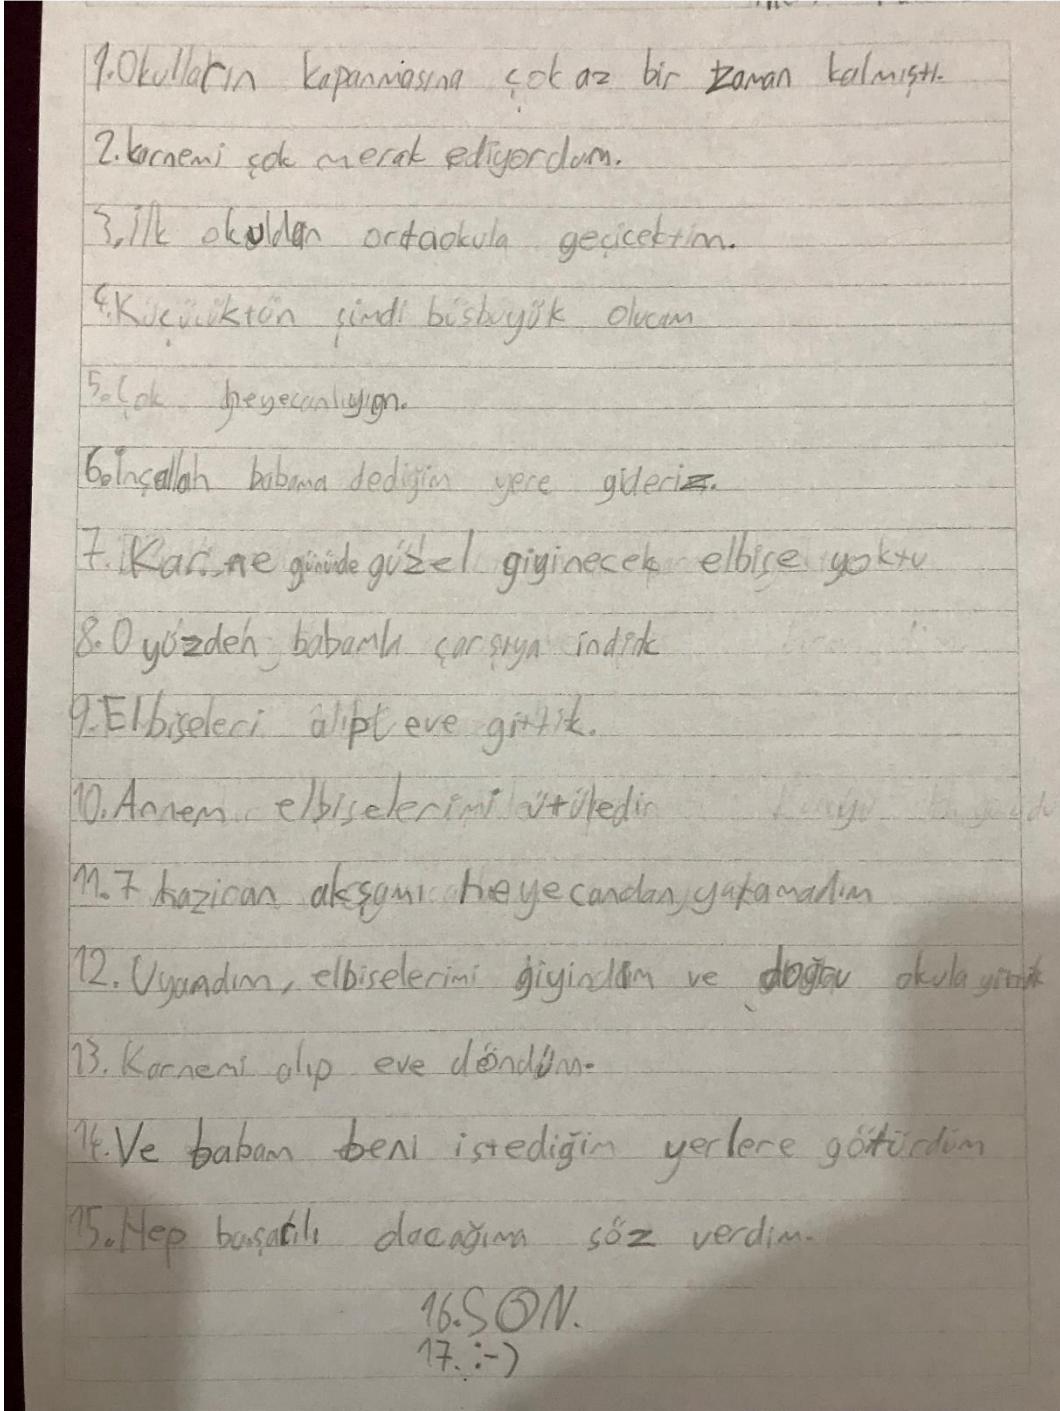 1.Okulların kapanmasına çok az bir zaman kalmıştı.
2.karnemi çok merak ediyordum.
3.ilk okuldan ortaokula geçicektim.
4.Küçüktön şimdi büsbüyük olucam
5.Çok heyecanlıyım.
6.İnşallah babama dediğim yere gideriz.
7.Karne gününde güzel giyinecek elbise yoktu
8.O yüzden babamla çarşıya indik
9.Elbiseleri alıp eve gittik.
10.Annem elbiselerimi ütüledi
11.7 haziran akşamı heyecandan yatamadım
12.Uyandım, elbiselerimi giyindim ve doğru okula
13.Karnemi alıp eve döndüm.
14.Ve babam beni istediğim yerlere götürdüm
15.Hep başarılı olacağıma söz verdim.
16.SON.
17. :-)